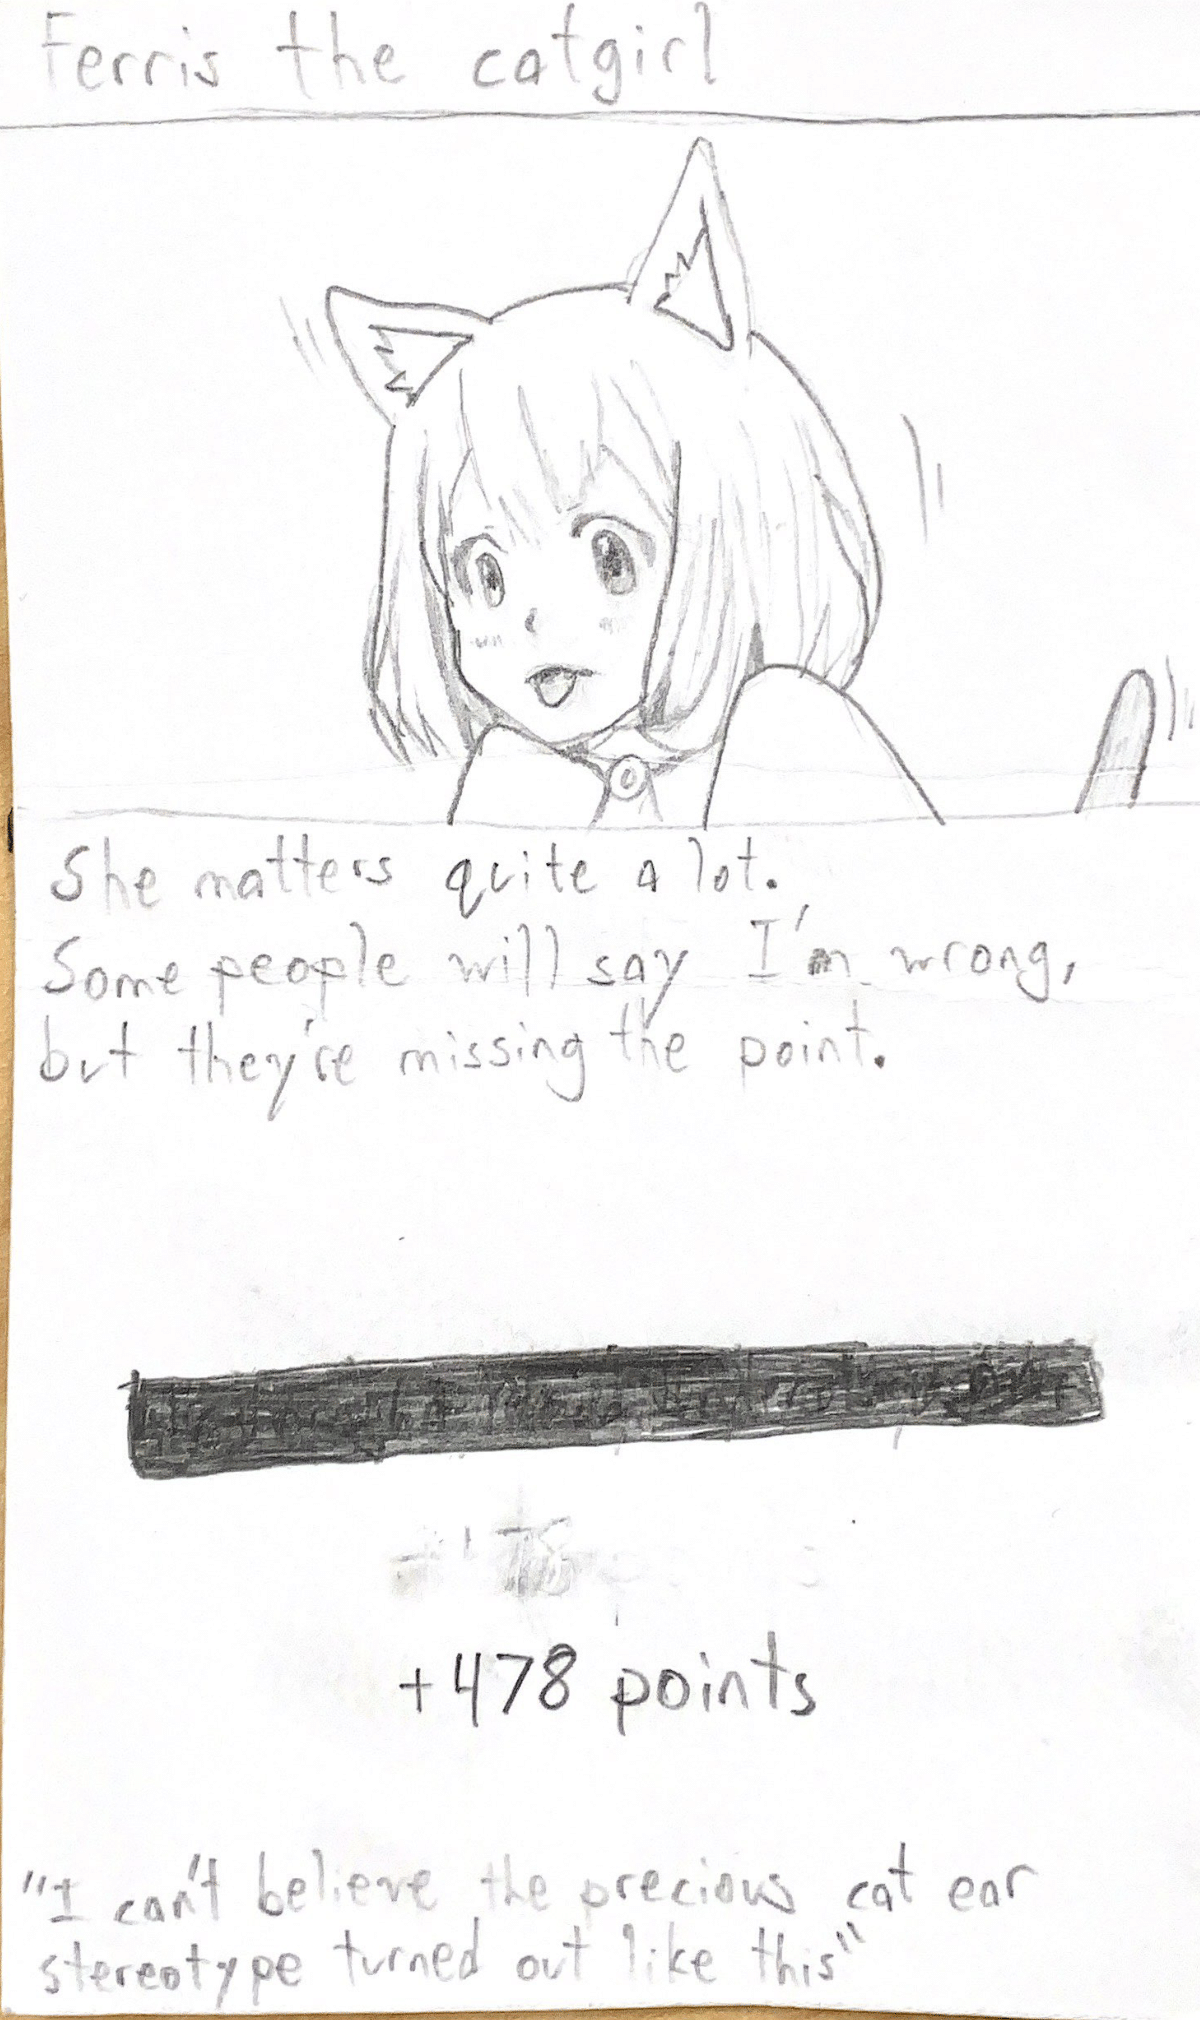 Ferris the catgirl
She matters quite a lot.
Some people will say I'm wrong,
but they're missing the point.
+478 points
"I can't believe the precious cat ear
stereotype turned out like this"